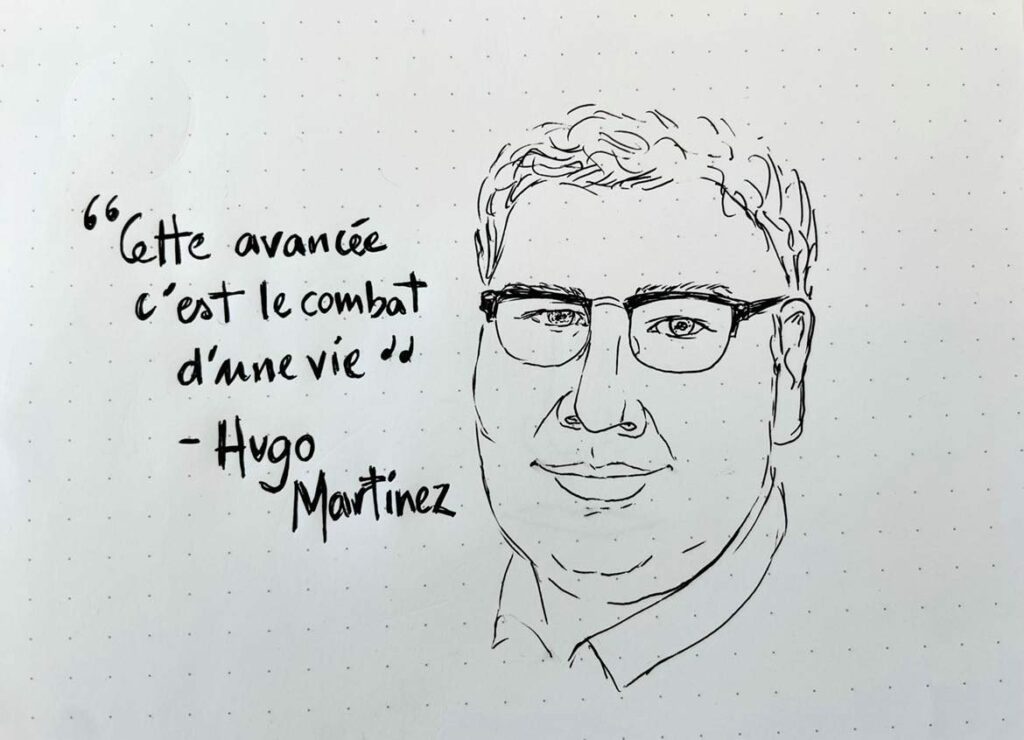 “Cette avancée
c'est le combat
d'une vie”
- Hugo
Martinez